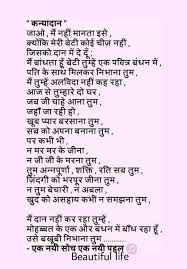 " कन्यादान "
जाओ , मैं नहीं मानता इसे ,
क्योंकि मेरी बेटी कोई चीज़ नहीं ,
जिसको दान में दे दूँ ;
मैं बांधता हूँ बेटी तुम्हें एक पवित्र बंधन में ,
पति के साथ मिलकर निभाना तुम ,
मैं तुम्हें अलविदा नहीं कह रहा ,
आज से तुम्हारे दो घर ,
जब जी चाहे आना तुम ,
जहाँ जा रही हो ,
खूब प्यार बरसाना तुम ,
सब को अपना बनाना तुम ,
पर कभी भी
न मर मर के जीना ,
न जी जी के मरना तुम ,
तुम अन्नपूर्णा , शक्ति , रति सब तुम ,
ज़िंदगी को भरपूर जीना तुम ,
न तुम बेचारी , न अबला ,
खुद को असहाय कभी न समझना तुम ,
मैं दान नहीं कर रहा तुम्हें ,
मोहब्बत के एक और बंधन में बाँध रहा हूँ ,
उसे बखूबी निभाना तुम ............
- एक नयी सोच एक नयी पहल
Beautiful life